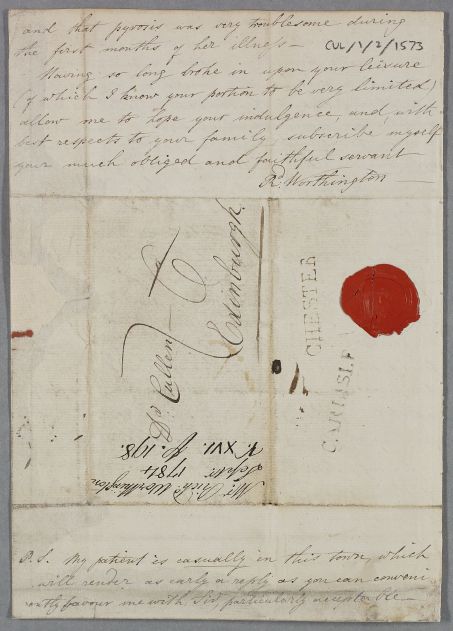 and that pyrosis was very troublesome during
the first months of her illness –
CUL/1/2/1573
Having so long broke in upon your leisure
(of which I know your portion to be very limited)
allow me to hope your indulgence, and, with
best respects to your family, subscribe myself
your much obliged and faithful servant
Rd. Worthington
Dr. Cullen
Edinburgh
CHESTER
CARLISLE
Mr. Richd. Worthington
Septr. 1784
V. XVI. p. 198.
P.S. My patient is casually in this town, which
will render as early a reply as you can conveni
ently favour me with Sir, particularly acceptable –